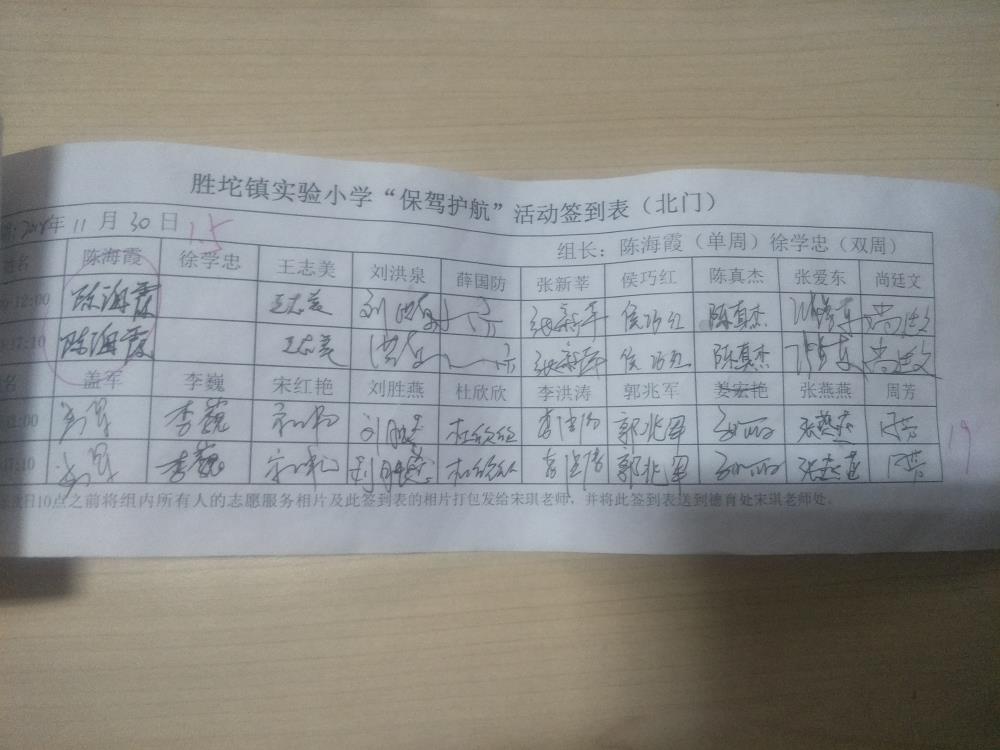 胜坨镇实验小学“保驾护航”活动签到表（北门）
年 11 月 30 日 15
组长：陈海霞（单周）徐学忠（双周）
名 陈海霞 徐学忠 王志美 刘洪泉 薛国防 张新莘 侯巧红 陈真杰 张爱东 尚廷文
12:00 陈海霞 王志美 刘洪泉 张新莘 侯巧红 陈真杰 尚廷文
17:10 陈海霞 王志美 洪泉 张新莘 侯巧红 陈真杰 尚廷文
名 盖军 李巍 宋红艳 刘胜燕 杜欣欣 李洪涛 郭兆军 姜宏艳 张燕燕 周芳
12:00 李巍 杜欣欣 郭兆军 张燕燕 周芳
17:10 李巍 刘胜燕 杜欣欣 郭兆军 张燕燕 周芳
19
日10点之前将组内所有人的志愿服务相片及此签到表的相片打包发给宋琪老师，并将此签到表送到德育处宋琪老师处。